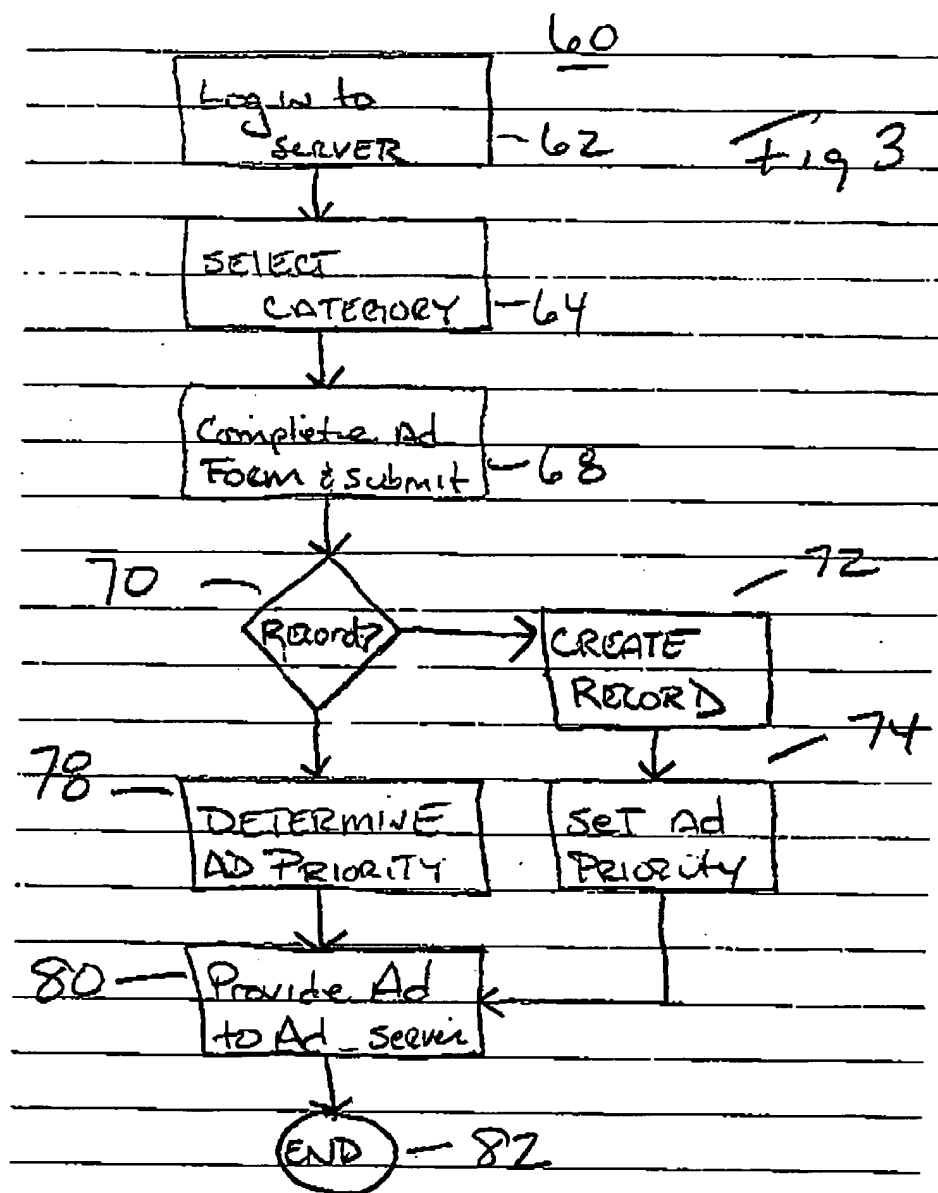 60
Fig 3
Log in to
SERVER
62
SELECT
CATEGORY
64
Complete Ad
Form & submit
68
70
Record?
72
CREATE
RECORD
74
SET Ad
PRIORITY
78
DETERMINE
AD PRIORITY
80
Provide Ad
to Ad_Server
END
82